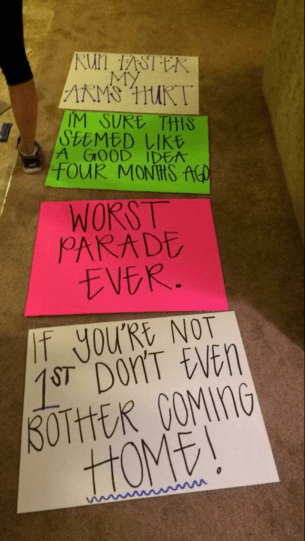 RUN FASTER
MY
ARMS HURT
I'M SURE THIS
SEEMED LIKE
A GOOD IDEA
FOUR MONTHS AGO
WORST
PARADE
EVER.
IF YOU'RE NOT
1ST DON'T EVEN
BOTHER COMING
HOME!